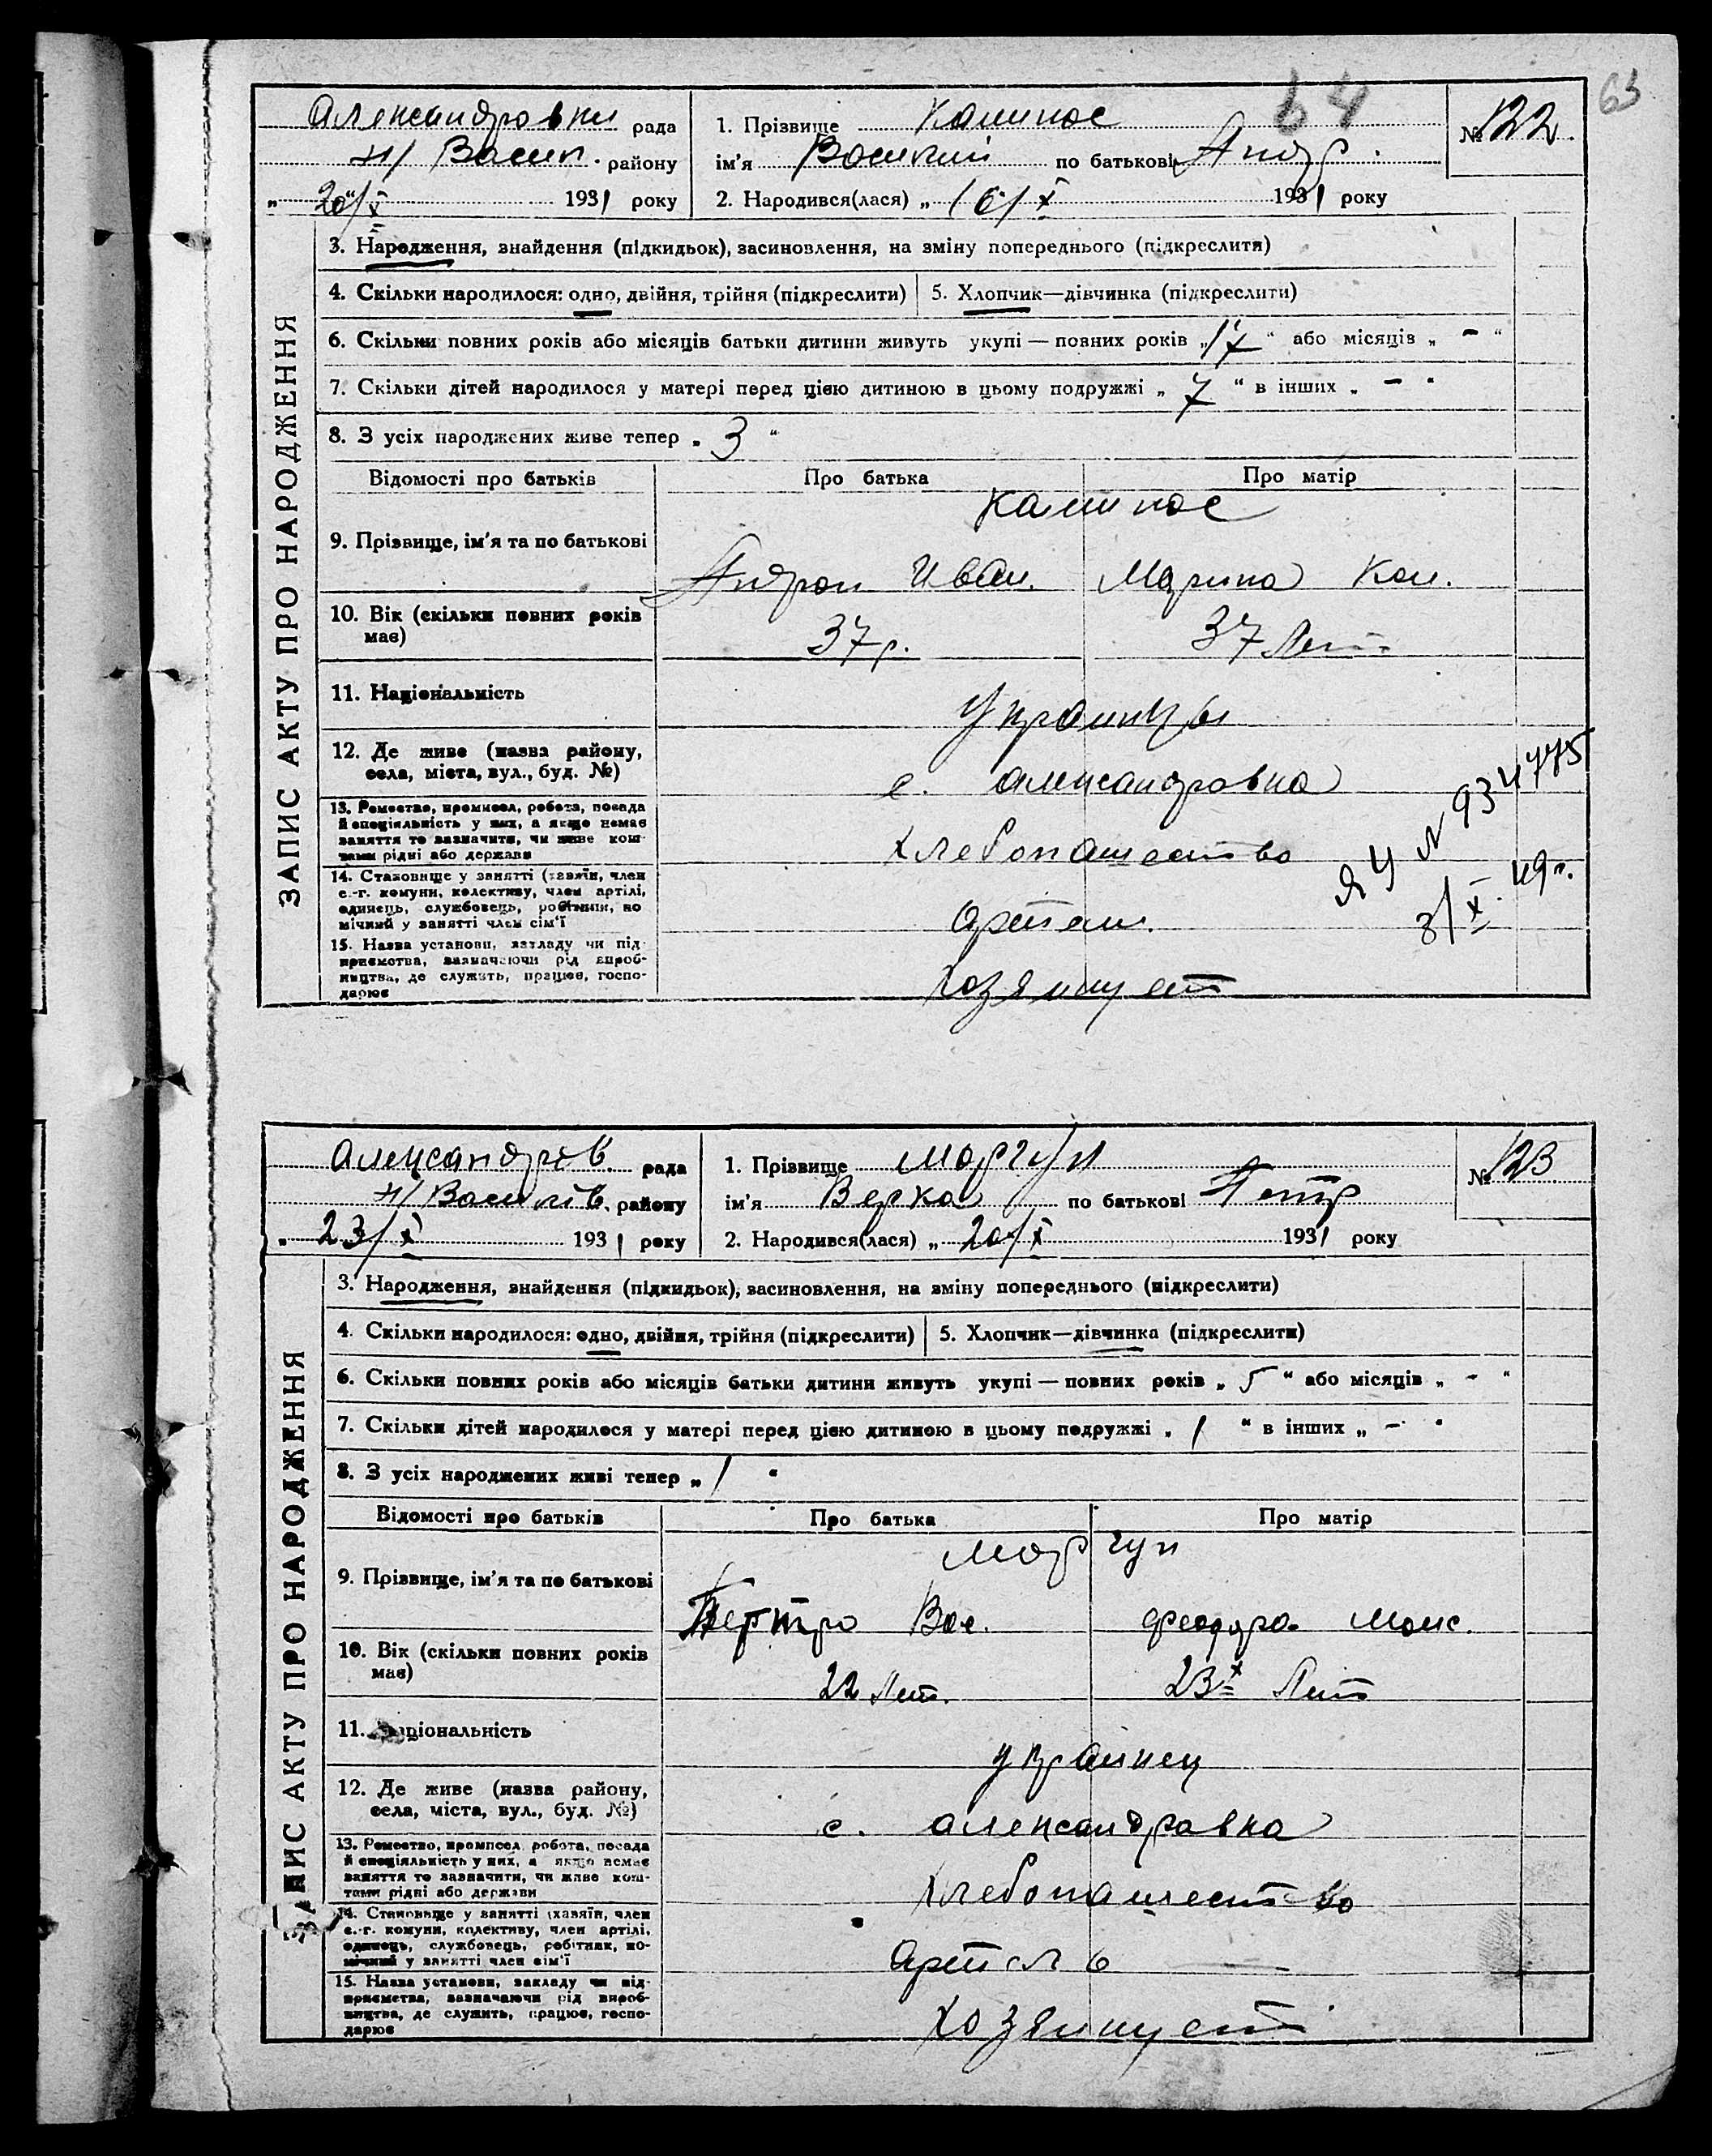 64
63
Александровки рада
н/ Васил. району
„ 20/X 1931 року
1. Прізвище
ім'я Василий по батькові Андр.
2. Народився(лася) „ 16/X 1931 року
№ 122
ЗАПИС АКТУ ПРО НАРОДЖЕННЯ
3. Народження, знайдення (підкидьок), засиновлення, на зміну попереднього (підкреслити)
4. Скільки народилося: одно, двійня, трійня (підкреслити)
5. Хлопчик—дівчинка (підкреслити)
6. Скільки повних років або місяців батьки дитини живуть укупі — повних років „ 17 “ або місяців „ - “
7. Скільки дітей народилося у матері перед цією дитиною в цьому подружжі „ 7 “ в інших „ - “
8. З усіх народжених живе тепер „ 3 “
Відомості про батьків
Про батька
Про матір
9. Прізвище, ім'я та по батькові
Андрей Иван.
Марина
10. Вік (скільки повних років
має)
37 г.
37 Лет
11. Національність
Украинцы
12. Де живе (назва району,
села, міста, вул., буд. №)
с. Александровка
13. Ремество, промисел, робота, посада
й спеціяльність у них, а якщо немає
заняття то зазначити, чи живе кош-
тами рідні або держави
Хлебопашество
14. Становище у занятті (хазяїн, член
с.-г. комуни, колективу, член артілі,
одинець, службовець, робітник, по-
мічний у занятті член сім'ї
Артель
15. Назва установи, закладу чи під-
приємства, зазначаючи рід вироб-
ництва, де служить, працює, госпо-
дарює
Хозяинует
ЯЧ № 934775
8/X 49 г.
Александров. рада
н/ Василів. району
„ 23/X 1931 року
1. Прізвище Моргун
ім'я Верка по батькові Петр
2. Народився(лася) „ 20/X 1931 року
№ 123
ЗАПИС АКТУ ПРО НАРОДЖЕННЯ
3. Народження, знайдення (підкидьок), засиновлення, на зміну попереднього (підкреслити)
4. Скільки народилося: одно, двійня, трійня (підкреслити)
5. Хлопчик—дівчинка (підкреслити)
6. Скільки повних років або місяців батьки дитини живуть укупі — повних років „ 5 “ або місяців „ - “
7. Скільки дітей народилося у матері перед цією дитиною в цьому подружжі „ 1 “ в інших „ - “
8. З усіх народжених живі тепер „ 1 “
Відомості про батьків
Про батька
Про матір
Моргун
9. Прізвище, ім'я та по батькові
Вас.
Феодора
10. Вік (скільки повних років
має)
22 Лет.
23х Лет
11. Національність
украинец
12. Де живе (назва району,
села, міста, вул., буд. №)
с. Александровка
13. Ремество, промисел, робота, посада
й спеціяльність у них, а якщо немає
заняття то зазначити, чи живе кош-
тами рідні або держави
Хлебопашество
14. Становище у занятті (хазяїн, член
с.-г. комуни, колективу, член артілі,
одинець, службовець, робітник, по-
мічний у занятті член сім'ї
Артель
15. Назва установи, закладу чи під-
приємства, зазначаючи рід вироб-
ництва, де служить, працює, госпо-
дарює
Хозяинует